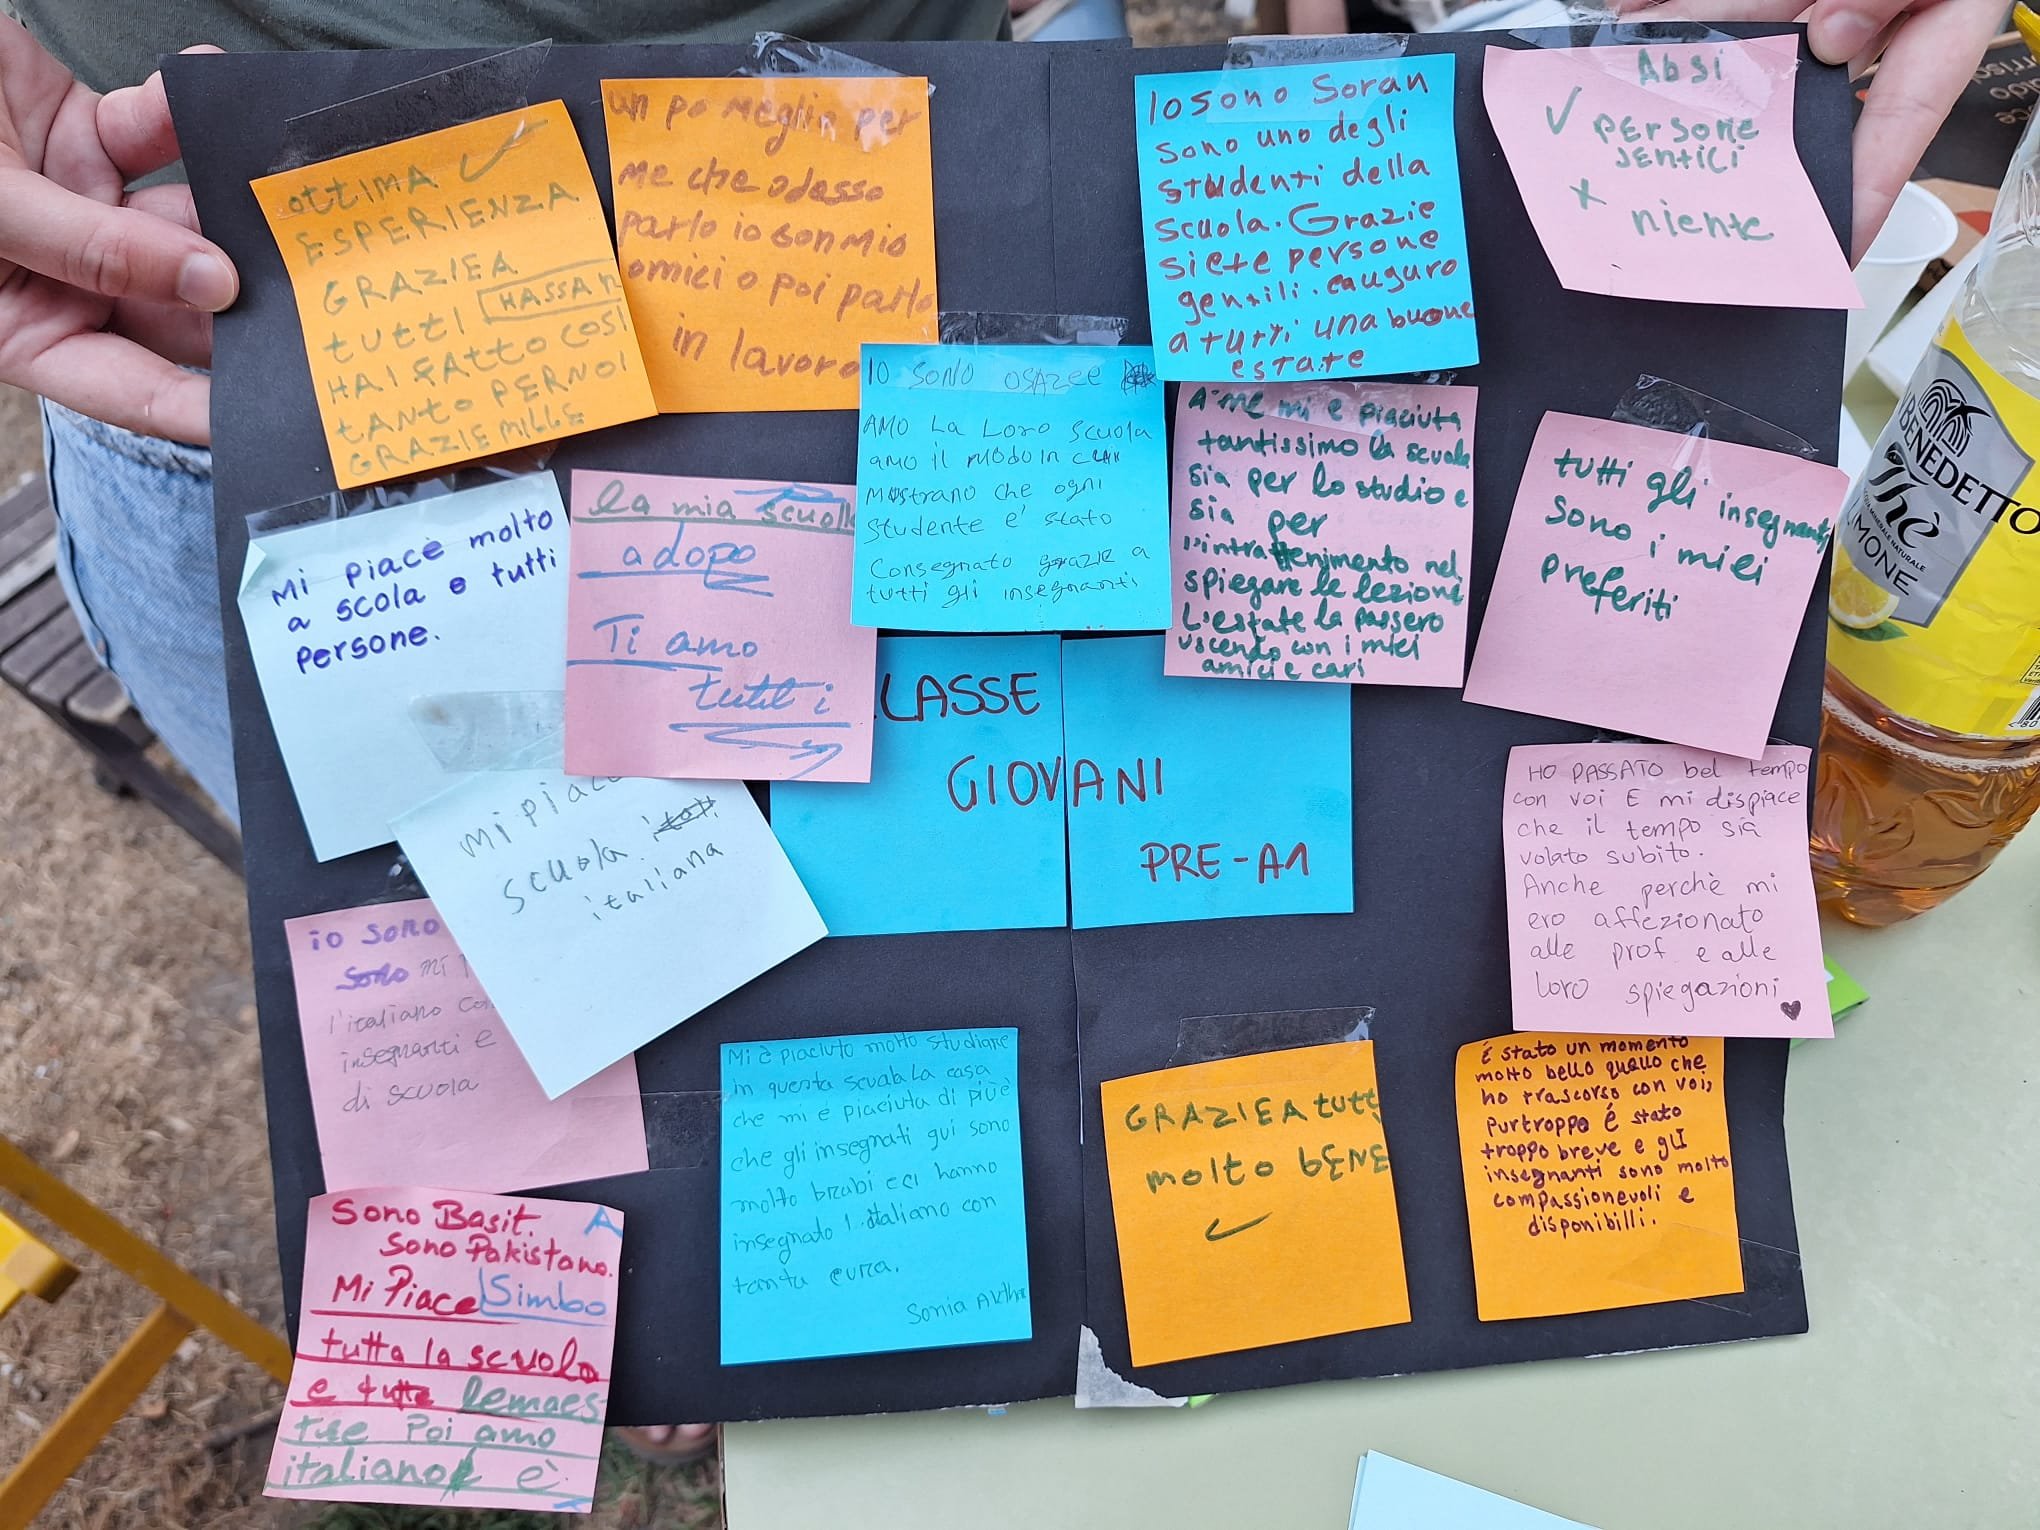 OTTIMA ✓
ESPERIENZA
GRAZIEA
TUTTI HASSAN
HAI FATTO COSI
TANTO PERNOI
GRAZIE MILLE
un po meglio per
me che adesso
parlo io con mio
amici o poi parlo
in lavoro
Io sono Soran
sono uno degli
studenti della
scuola. Grazie
siete persone
gentili. eauguro
a tutti una buone
estate
Absi
✓ PERSONE
GENTICI
x niente
IO SONO OSAZEE
AMO LA LORO SCUOLA
amo il modo in cui
mostrano che ogni
studente e' stato
Consegnato grazie a
tutti gli insegnanti
A me mi e piaciuta
tantissimo la scuola
sia per lo studio e
sia per
l'intrattenimento nel
spiegare le lezione
L'estate la passero
uscendo con i miei
amici e cari
tutti gli insegnanti
sono i miei
preferiti
Mi piacè molto
a scola e tutti
persone.
la mia scuola
a dopo
Ti amo
tutti
Mi piac
scuola
italiana
LASSE
GIOVANI
PRE-A1
HO PASSATO bel tempo
con voi E mi dispiace
che il tempo sia
volato subito.
Anche perchè mi
ero affezionato
alle prof e alle
loro spiegazioni ♥
io sono
sono mi
l'italiano con
insegnanti e
di scuola
Mi è piaciuto molto studiare
in questa scuola La casa
che mi é piaciuta di più è
che gli insegnati qui sono
molto brabi e ci hanno
insegnato l'italiano con
tanta cura.
Sonia
GRAZIEA tutti
molto bENE
✓
É stato un momento
molto bello quello che
ho trascorso con voi,
purtroppo é stato
troppo breve e glI
insegnanti sono molto
compassionevoli e
disponibilli.
Sono Basit. A
Sono Pakistano.
Mi Piace Simbo
tutta la scuola
e tutte lemaes
tre Poi amo
italiano è
BENEDETTO
Thè
ACQUA MINERALE NATURALE
LIMONE